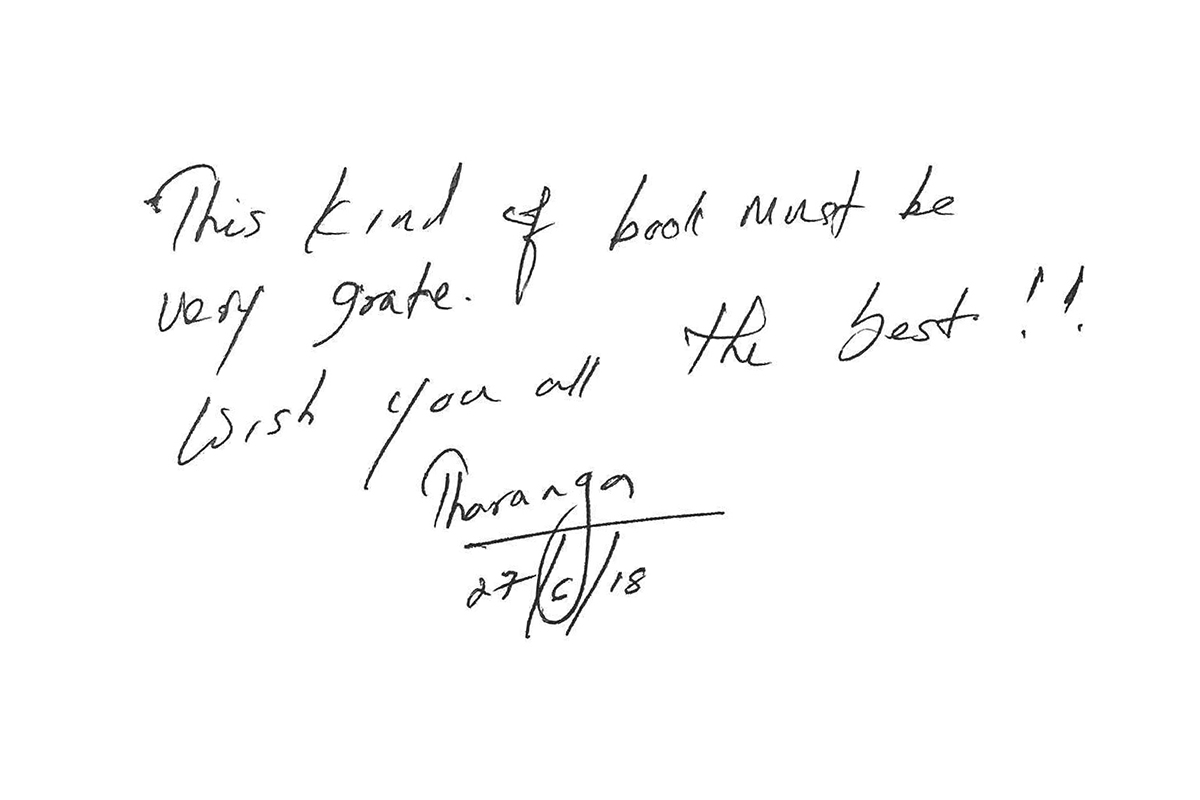 This kind of book must be
very grate.
Wish you all the best!!
Tharanga
27/6/18